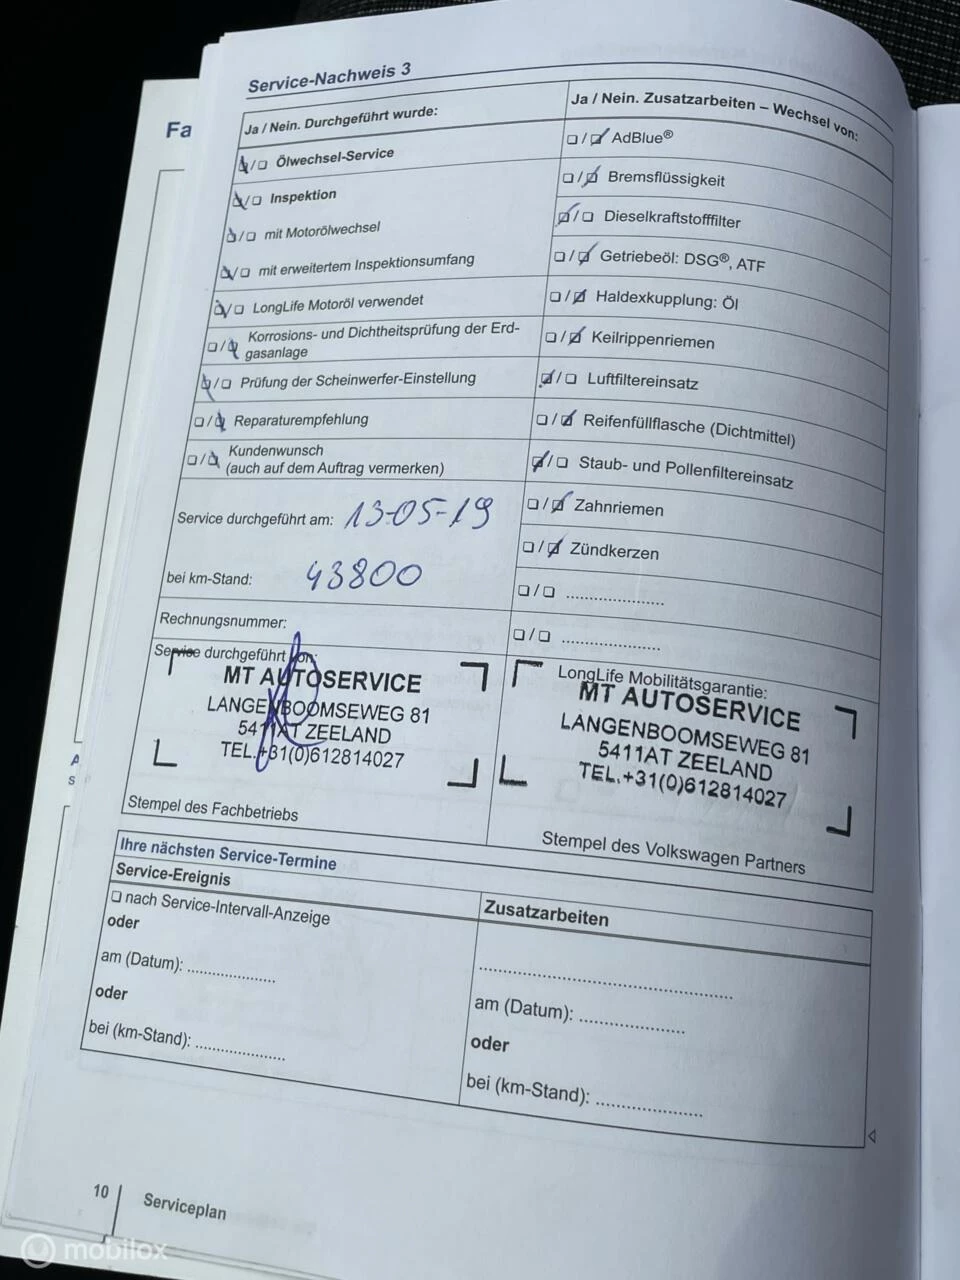 Service-Nachweis 3
Fa
Ja / Nein. Durchgeführt wurde:
Ölwechsel-Service
Inspektion
mit Motorölwechsel
mit erweitertem Inspektionsumfang
LongLife Motoröl verwendet
Korrosions- und Dichtheitsprüfung der Erd-
gasanlage
Prüfung der Scheinwerfer-Einstellung
Reparaturempfehlung
Kundenwunsch
(auch auf dem Auftrag vermerken)
Service durchgeführt am: 13-05-19
bei km-Stand: 43800
Rechnungsnummer:
Ja / Nein. Zusatzarbeiten – Wechsel von:
AdBlue®
Bremsflüssigkeit
Dieselkraftstofffilter
Getriebeöl: DSG®, ATF
Haldexkupplung: Öl
Keilrippenriemen
Luftfiltereinsatz
Reifenfüllflasche (Dichtmittel)
Staub- und Pollenfiltereinsatz
Zahnriemen
Zündkerzen
Service durchgeführt von:
MT AUTOSERVICE
LANGENBOOMSEWEG 81
5411AT ZEELAND
TEL.+31(0)612814027
Stempel des Fachbetriebs
LongLife Mobilitätsgarantie:
MT AUTOSERVICE
LANGENBOOMSEWEG 81
5411AT ZEELAND
TEL.+31(0)612814027
Stempel des Volkswagen Partners
Ihre nächsten Service-Termine
Service-Ereignis
nach Service-Intervall-Anzeige
oder
am (Datum): ....................
oder
bei (km-Stand): ....................
Zusatzarbeiten
am (Datum): ....................
oder
bei (km-Stand): ....................
10
Serviceplan
mobilox